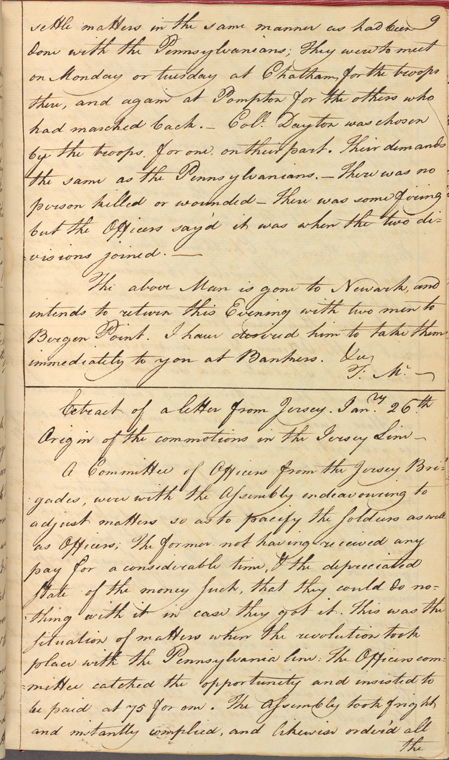 9
settle matters in the same manner as had been
done with the Pennsylvanians; They were to meet
on Monday or tuesday at Chatham, for the troops
there, and again at Pompton for the others who
had marched back. — Coll. Dayton was chosen
by the troops, for one, on their part. Their demands
the same as the Pennsylvanians. — There was no
person killed or wounded — There was some firing
but the Officers say'd it was when the two di-
visions joined. —
The above Man is gone to Newark, and
intends to return this Evening with two men to
Bergen Point. I have desired him to take them
immediately to you at Bankers. &c
T. M. —
Extract of a letter from Jersey. Jan.ry 26th
Origin of the commotions in the Jersey Line —
A Committee of Officers from the Jersey Bri-
gades, were with the Assembly endeavouring to
adjust matters so as to pacify the soldiers as well
as Officers; The former not having received any
pay for a considerable time, & the depreciated
state of the money such, that they could do no-
thing with it in case they got it. This was the
situation of matters when the revolution took
place with the Pennsylvania line. The Officers com-
mittee catched the opportunity and insisted to
be paid at 75 for one. The Assembly took fright
and instantly complied, and likewise order'd all
the